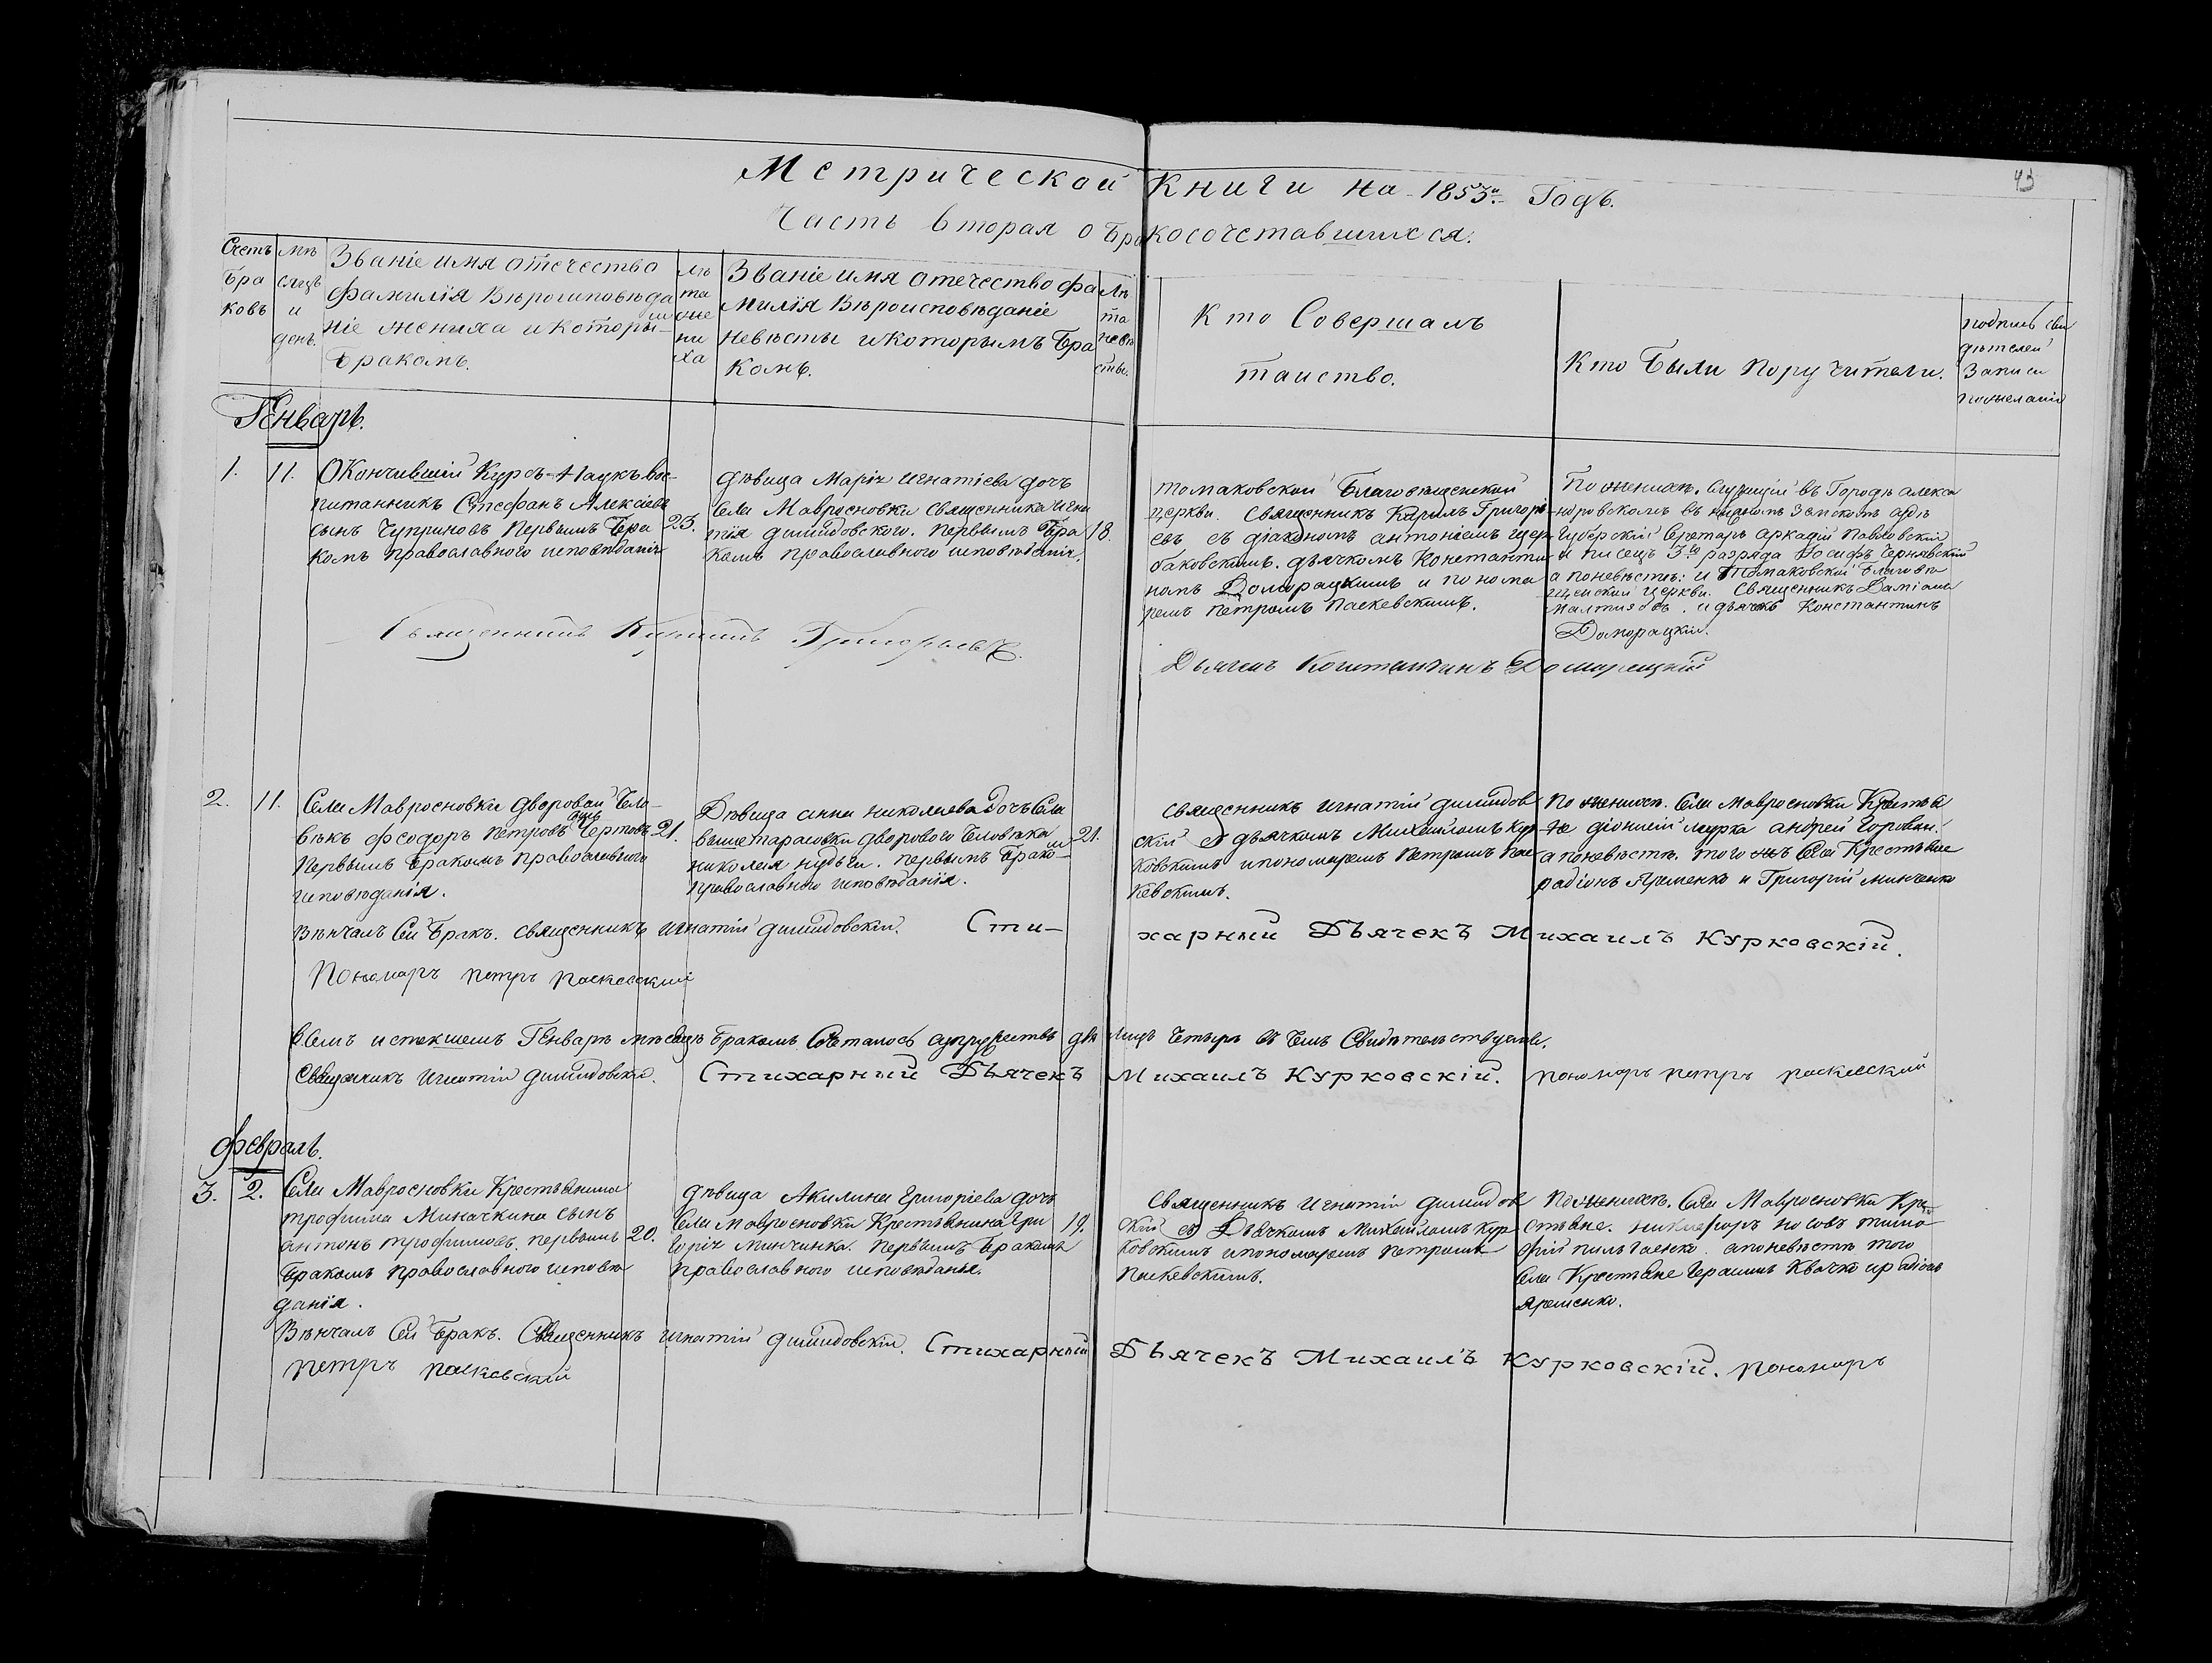 43
Метрической Книги на 1853й Годъ.
Часть вторая о Бракосочетавшихся.
Счетъ Браковъ
Мѣсяцъ и день.
Званіе имя отечество
фамилія Вѣроисповѣда
ніе жениха и которы-
мъ
Бракомъ.
Лѣта жениха
Званіе имя отечество фа
милія Вѣроисповѣданіе
невѣсты и которымъ Бра
комъ.
Лѣта невѣсты.
Кто Совершалъ
таинство.
Кто Были Поручители.
подпись сви
дѣтелей
Записи
по желанію
Генварь.
1. 11.
Окончившій Курсъ Наукъ вос-
питанникъ Стефанъ Алексіевъ
сынъ Чуприновъ Первымъ Бра
комъ православного исповѣданія
23.
дѣвица Марія Игнатіева дочь
Села Мавросновки священника Игна
тія Демидовского. Первымъ Бра
комъ православного исповѣданія.
18.
томаковской Благовѣщенской
церкви. Священникъ Кирилъ Григорі
евъ съ діакономъ антоніемъ Щер
баковскимъ. дьячкомъ Константи
номъ Доморацкимъ и понома
ремъ Петромъ Паскевскимъ.
По женихѣ. Служащій въ Городѣ Алекса
ндровскомъ въ Земскомъ
Губерскій Секретарь аркадій Павловскій
и писецъ 3го разряда Іосифъ Чернявскій
а по невѣстѣ: и Томаковской Благовѣ
щенской церкви. Священникъ Даміанъ
и дьячекъ Константинъ
Доморацкій.
Священникъ Кирилъ Григорьевъ.
Дьячекъ Константинъ Доморацкій
2. 11.
Села Мавросновки дворовой Чело-
вѣкъ Феодоръ Петровъ Чертовъ
Первымъ Бракомъ Православного
исповѣданія.
21.
Дѣвица анна николаева Дочь Села
вышетарасовки дворового Человѣка
николая нудьги. первымъ Брако-
мъ
Православного исповѣданія.
21.
Священникъ игнатій димидов
скій съ дьячкомъ Михаиломъ Кур
ковскимъ и пономаремъ Петромъ Пас
кевскимъ.
по женихѣ. Села Мавросновки Крестья
не діонисій мурка андрей Горован.
а по невѣстѣ. того жъ Села Крестьяне
радіонъ Яременко и Григорій минченко
Вѣнчалъ Сей Бракъ. священникъ игнатій димидовскій. Сти-
харный Дьячекъ Михаилъ Курковскій.
Пономарь петръ паскевскій
Всемъ истекшемъ Генварѣ мѣсяцѣ Бракомъ Сочеталось супружествъ два лицъ Четыре въ Чемъ Свидѣтельствуемъ.
Священникъ Игнатій димидовскій. Стихарный Дьячекъ Михаилъ Курковскій. пономарь петръ паскевскій
Февраль.
3. 2.
Села Мавросновки Крестьянина
трофима Миначкина сынъ
антонъ трофимовъ. первымъ
Бракомъ православного исповѣ
данія.
20.
дѣвица Акилина Григоріева дочь
Села Мавросновки Крестьянина Гри
горія Минчинка. Первымъ Бракомъ
православного исповѣданія.
19.
Священникъ Игнатій димидов
скій съ Дьячкомъ Михаиломъ Кур
ковскимъ и пономаремъ петромъ
Паскевскимъ.
По женихѣ. Села Мавросновки Кре-
стьяне. никифоръ носовъ тимо
фій пильгаенко. а по невѣстѣ того
Села Крестьяне Герасимъ Квачко и радіонъ
Яременко.
Вѣнчалъ Сей Бракъ. Священникъ игнатій димидовскій. Стихарный Дьячекъ Михаилъ Курковскій. пономарь
петръ паскевскій